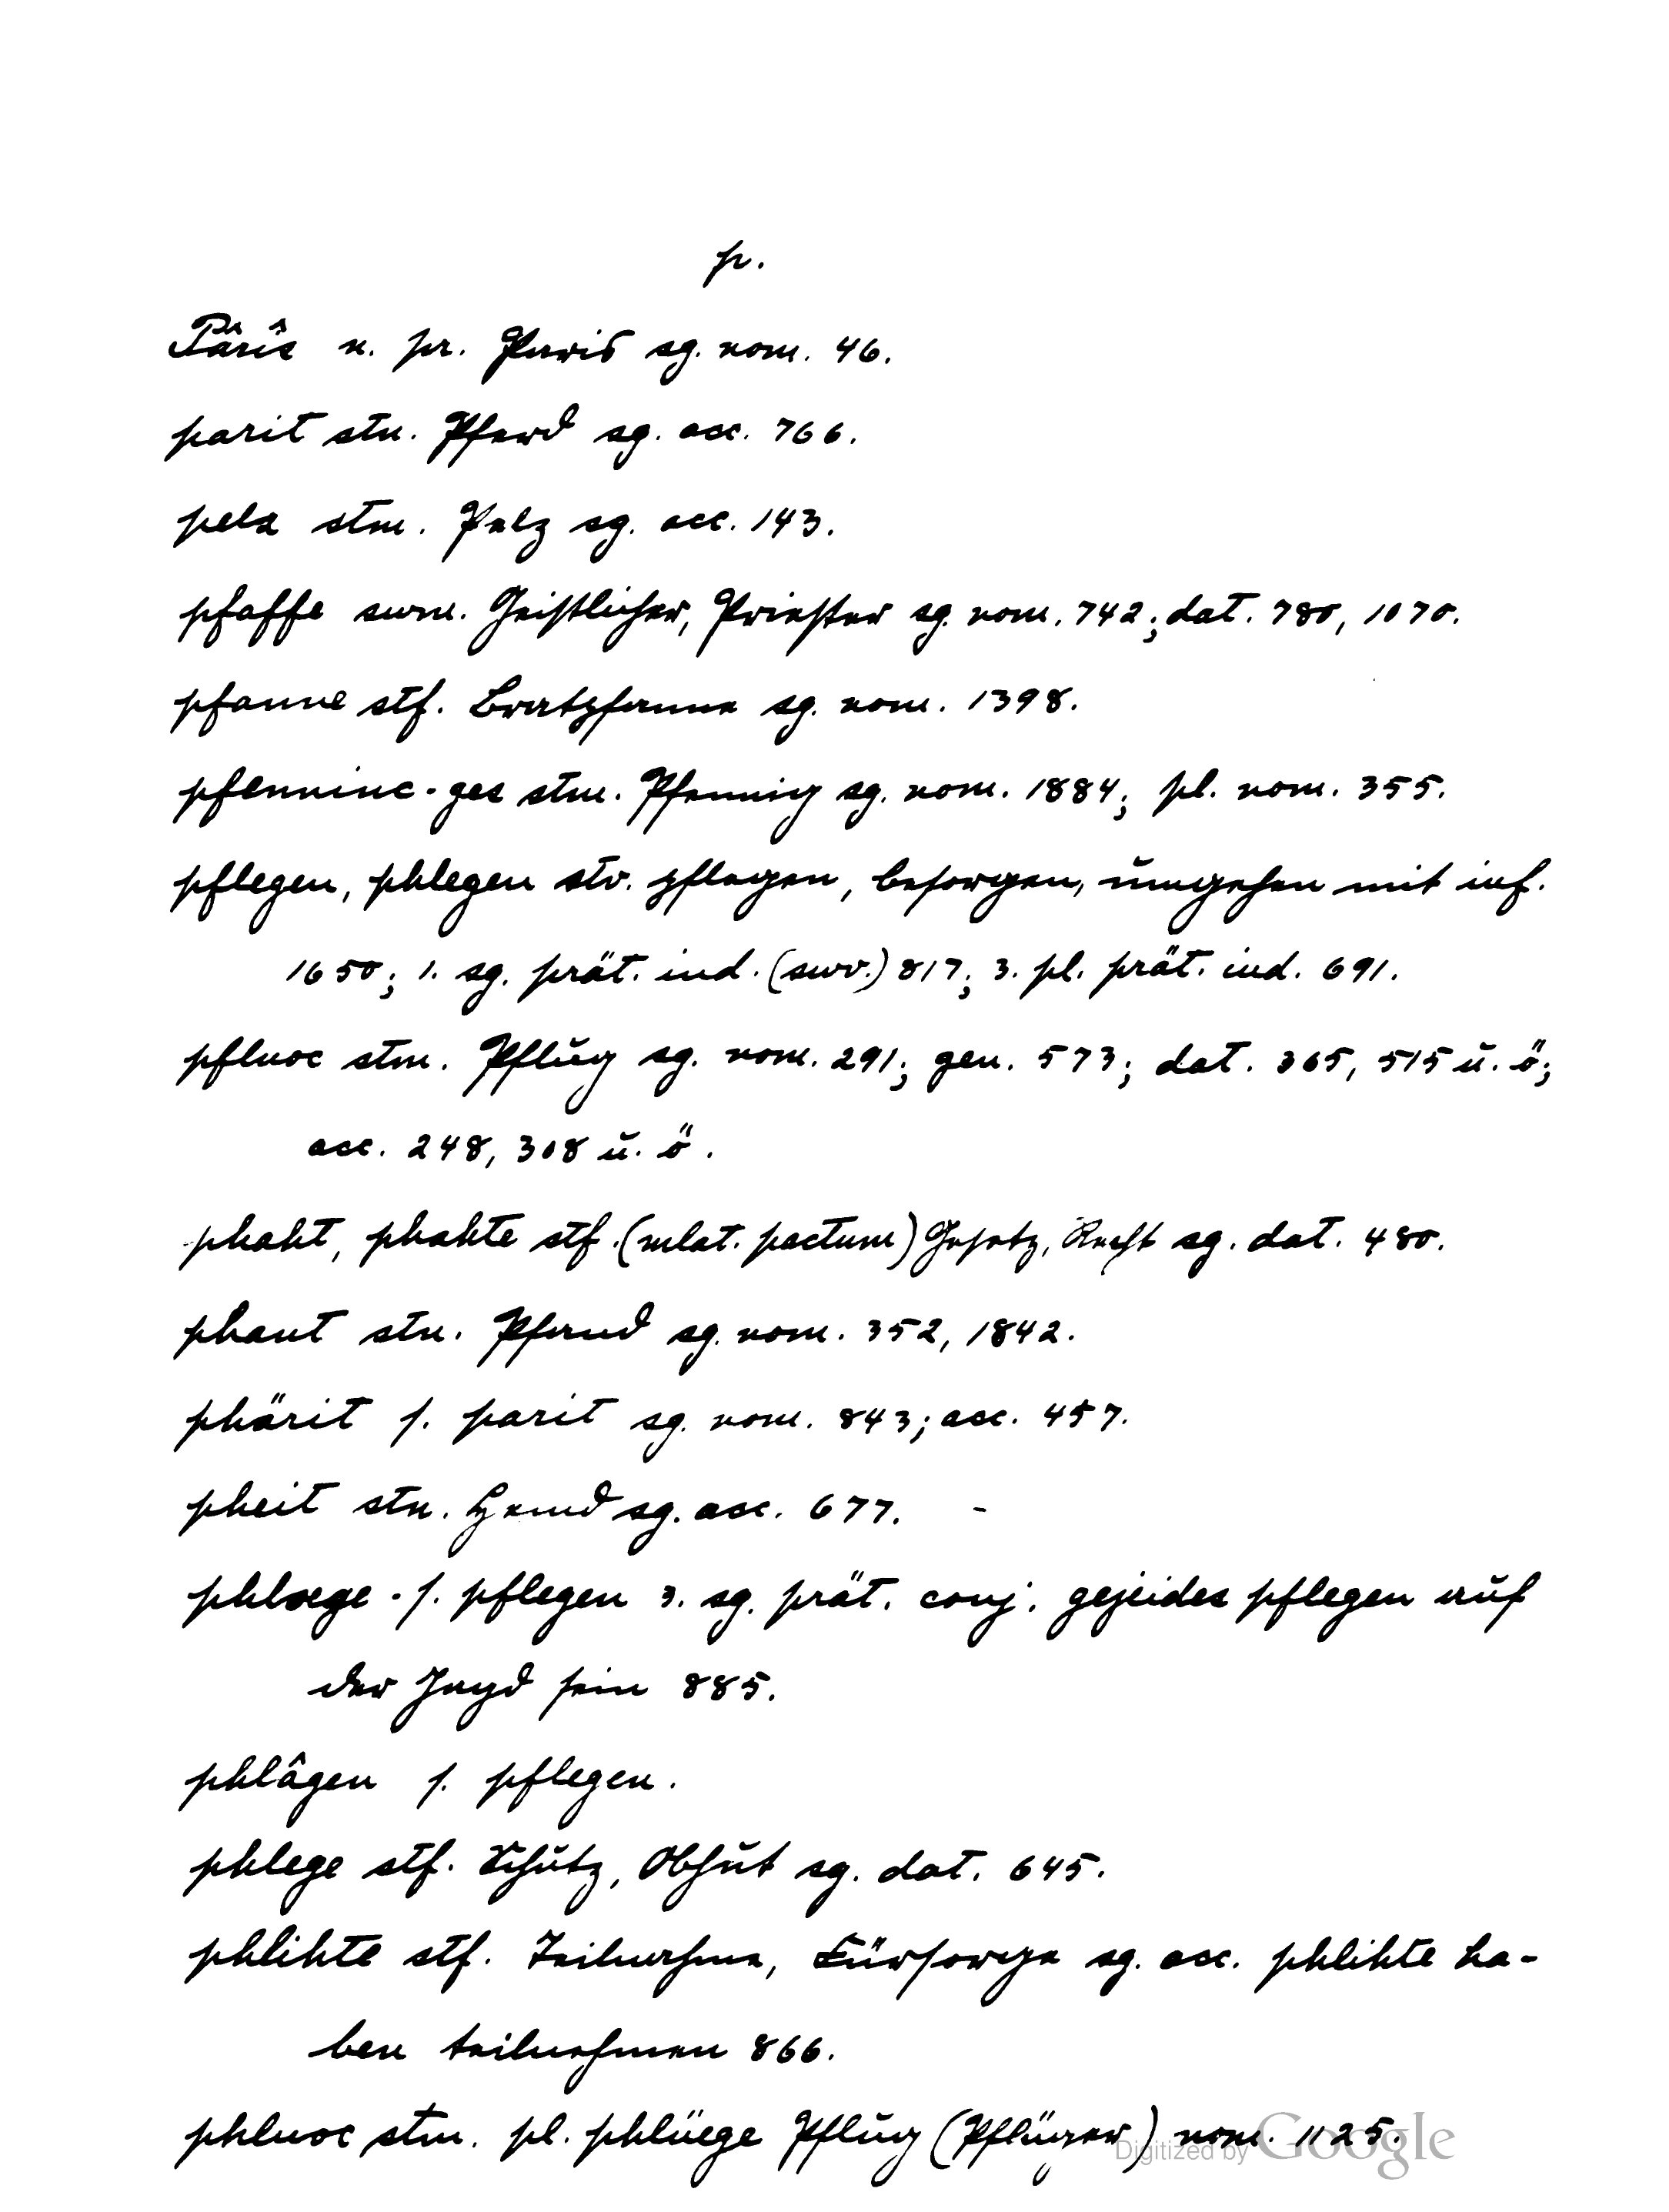 p.
Pârîs n. pr. Paris sg. nom. 46.
parit stn. Pferd sg. acc. 766.
pelz stm. Pelz sg. acc. 143.
pfaffe swm. Geistlicher, Priester sg. nom. 742; dat. 780, 1070.
pfanne stf. Bratpfanne sg. nom. 1398.
pfenninc-ges stm. Pfennig sg. nom. 1884; pl. nom. 355.
pflegen, phlegen stv. pflegen, besorgen, umgehen mit inf.
1650; 1. sg. prät. ind. (swv.) 817; 3. pl. prät. ind. 691.
pfluoc stm. Pflug sg. nom. 291; gen. 573; dat. 365, 515 u. ö;
acc. 248, 308 u. ö.
phaht, phahte stf. (mlat. pactum) Gesetz, Recht sg. dat. 480.
phant stn. Pfand sg. nom. 352, 1842.
phärit s. parit sg. nom. 843; acc. 457.
pheit stn. Hemd sg. acc. 677. -
phlæge - s. pflegen 3. sg. prät. conj. gejeides pflegen auf
der Jagd sein 885.
phlâgen s. pflegen.
phlege stf. Schutz, Obhut sg. dat. 645.
phlihte stf. Teilnahme, Fürsorge sg. acc. phlihte ha-
ben teilnehmen 866.
phluoc stm. pl. phlüege Pflug (Pflüger) nom. 1125.
Digitized by Google